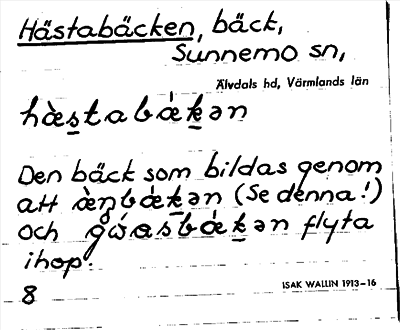 Hästabäcken, bäck,
Sunnemo sn,
Älvdals hd, Värmlands län
hæ̀stabǽkən
Den bäck som bildas genom
att æ̀ŋbǽkən (Se denna!)
och gẃasbǽkən flyta
ihop.
8
ISAK WALLIN 1913–16